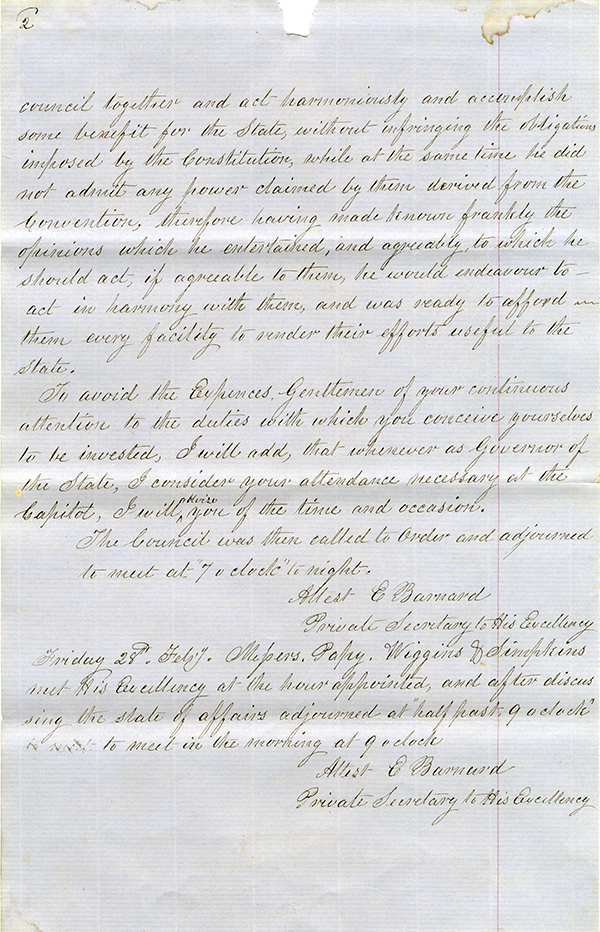 2
council together and act harmoniously and accomplish
some benefit for the State, without infringing the obligations
imposed by the Constitution, while at the same time he did
not admit any power claimed by them derived from the
Convention, therefore having made known frankly the
opinions which he entertained, and agreeably, to which he
should act, if agreeable to them, he would endeavour to –
act in harmony with them, and was ready to afford
them every facility to render their efforts useful to the
State.
To avoid the Expences, Gentlemen of your continuous
attention to the duties with which you conceive yourselves
to be invested, I will add, that whenever as Governor of
the State, I consider your attendance necessary at the
Capitol, I will advise you of the time and occasion.
The Council was then called to Order and adjourned
to meet at "7 o clock" to night.
Attest E Barnard
Private Secretary to His Excellency
Friday 28th. Feby. Messers. Papy. Wiggins & Simpkins
met His Excellency at the hour appointed, and after discus
sing the state of affairs adjourned at "half past 9 o clock"
to meet in the morning at 9 o clock
Attest E Barnard
Private Secretary to His Excellency